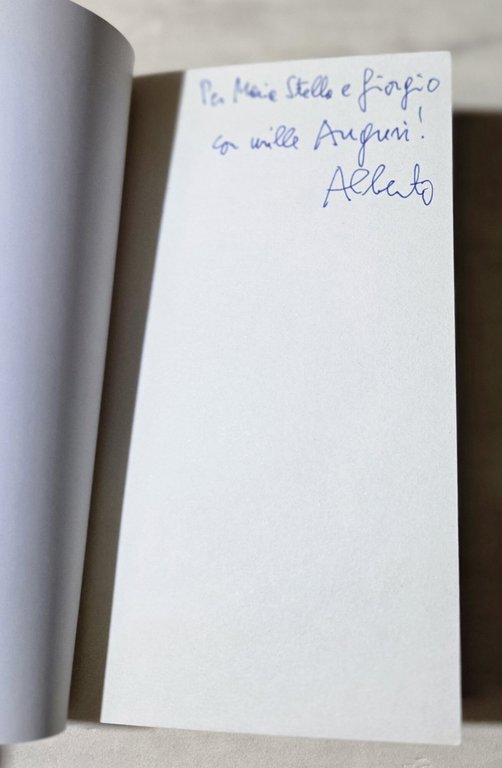 Per Maria Stella e Giorgio
con mille Auguri!
Alberto